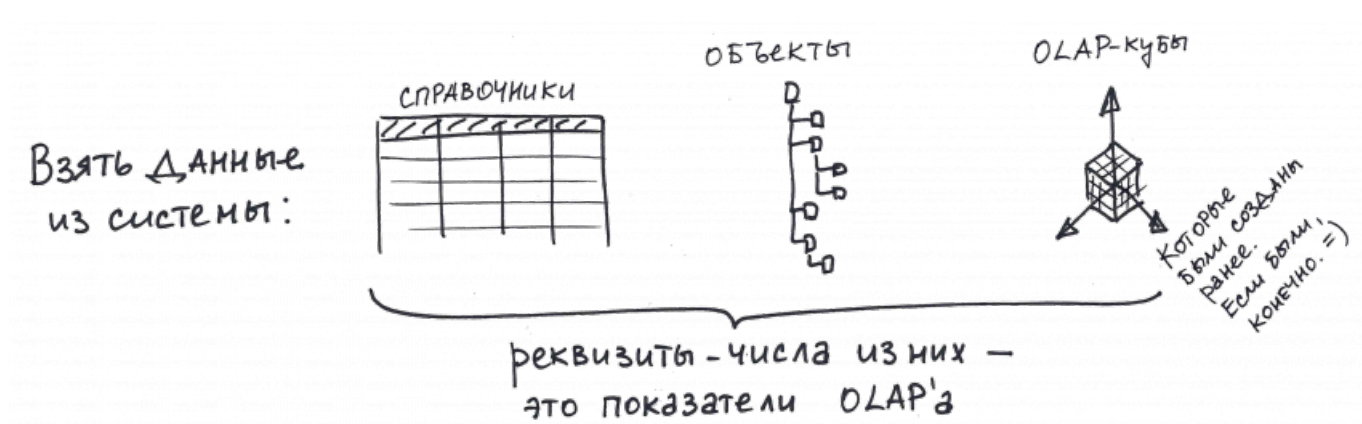 Взять данные
из системы:
СПРАВОЧНИКИ
ОБЪЕКТЫ
OLAP-кубы
которые
были созданы
ранее.
Если были,
конечно. =)
реквизиты - числа из них —
это показатели OLAP'а